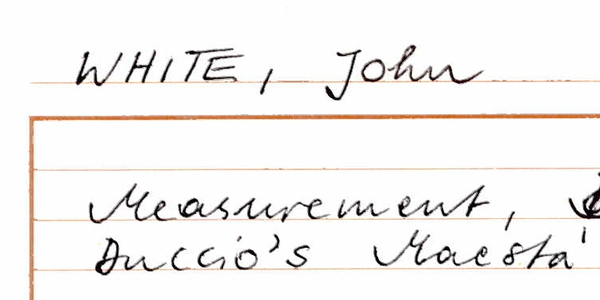 WHITE, John
Measurement,
Duccio's Maestà